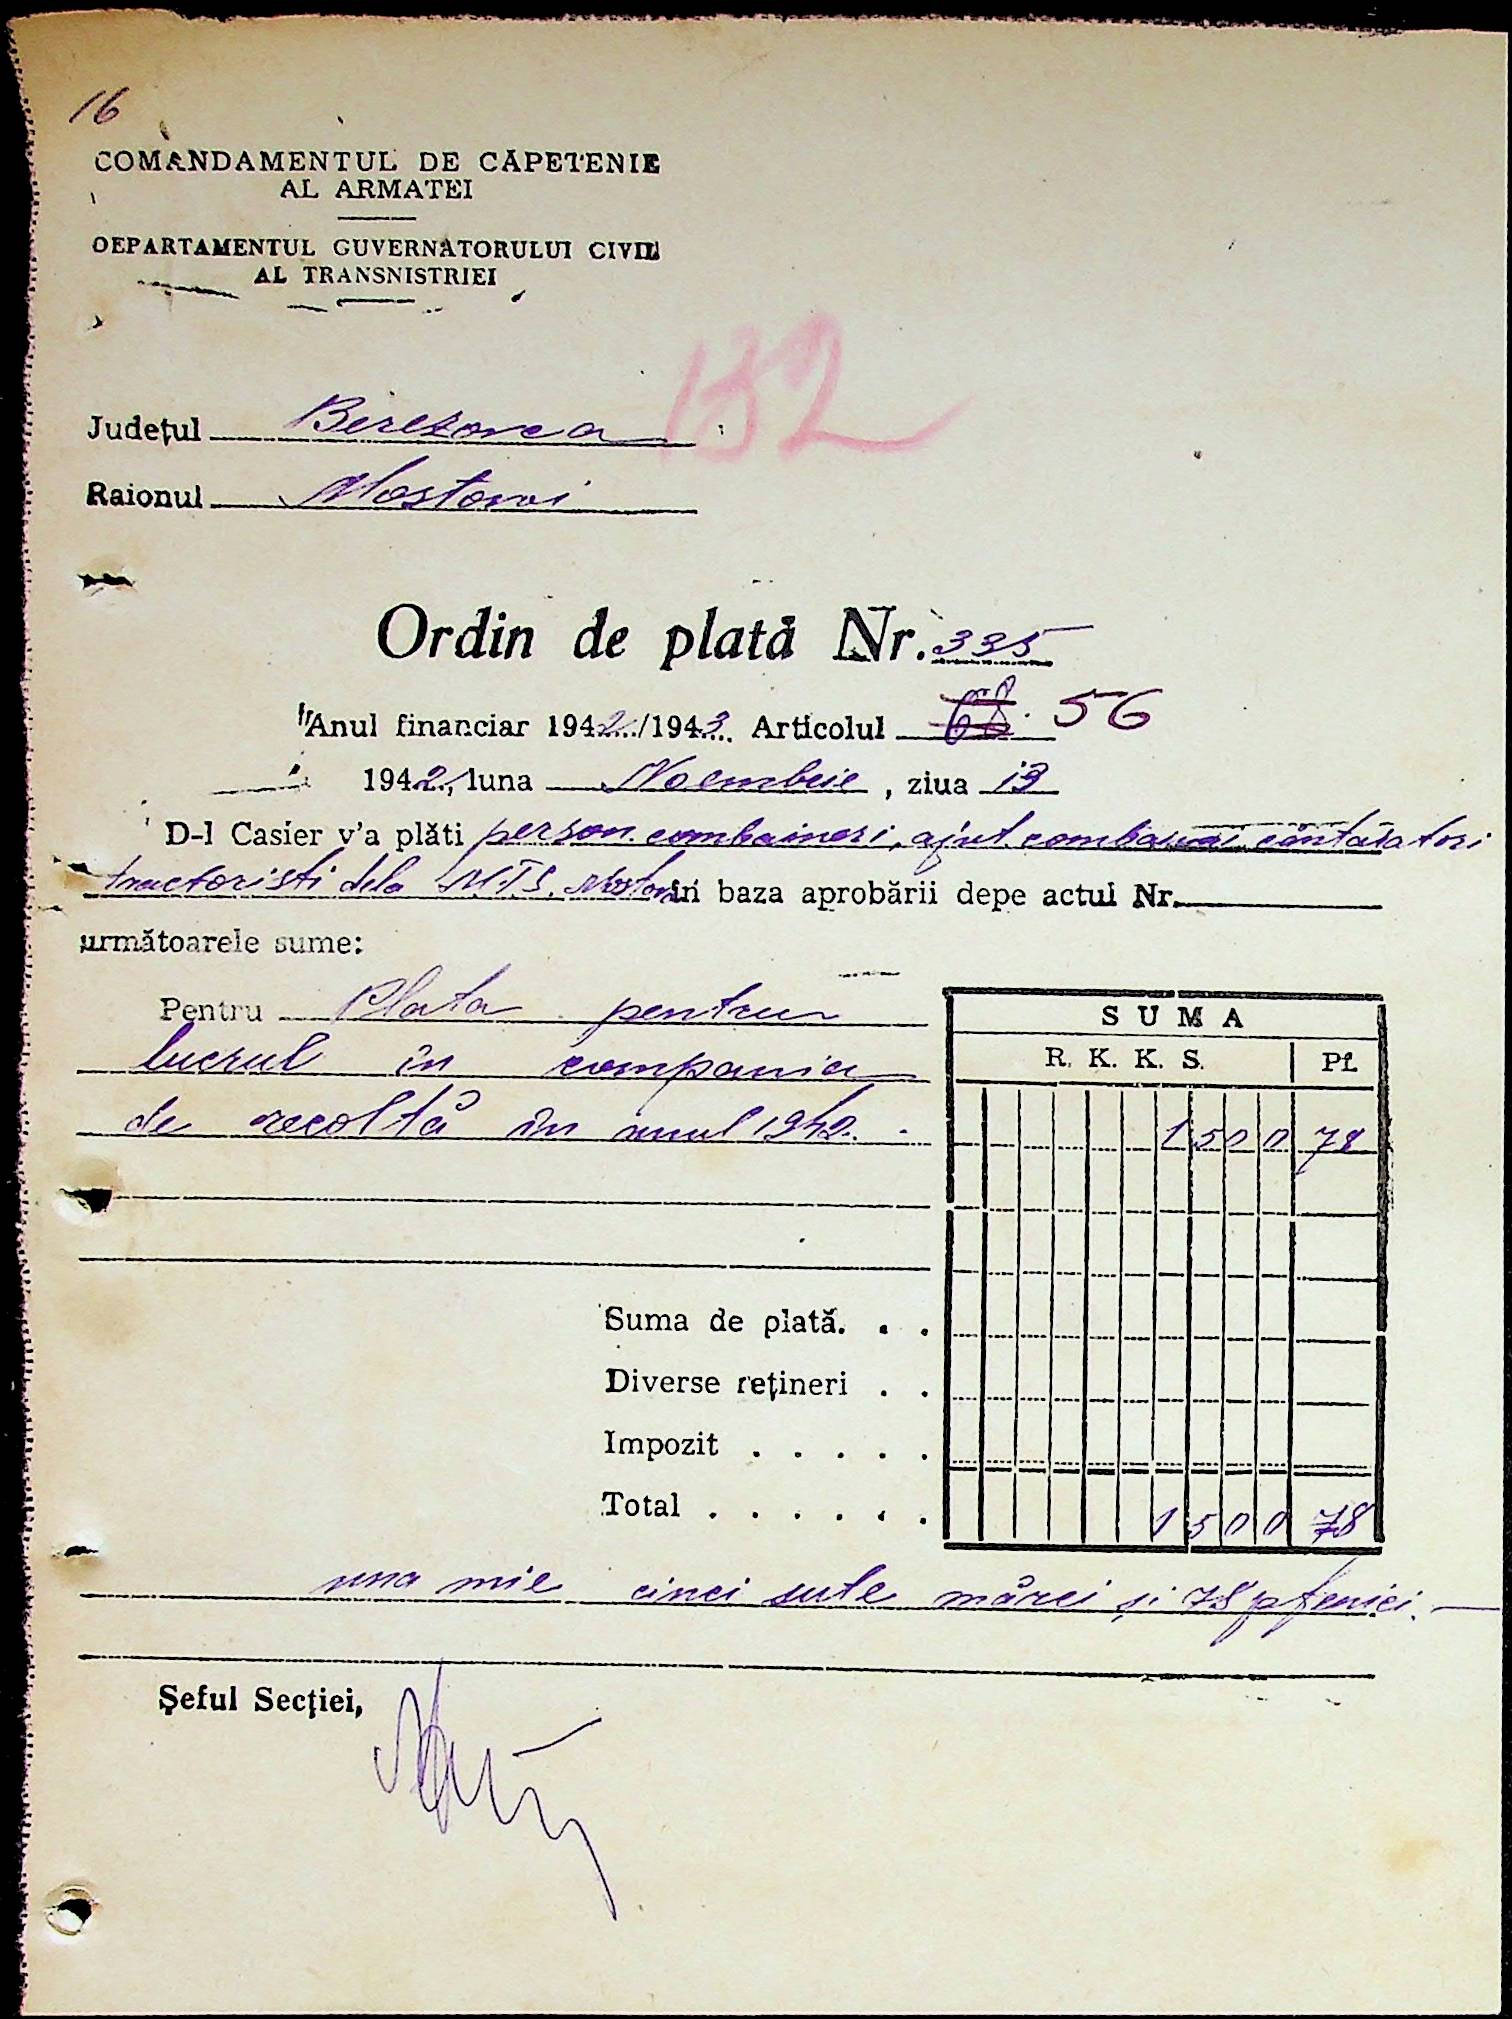 16
COMANDAMENTUL DE CĂPETENIE
AL ARMATEI
DEPARTAMENTUL GUVERNATORULUI CIVIL
AL TRANSNISTRIEI
132
Județul Beresovca
Raionul Mostovoi
Ordin de plată Nr. 335
Anul financiar 1942/1943 Articolul 68 56
1942, luna Noembrie, ziua 13
D-l Casier v'a plăti person. combaineri, ajut. combaineri cântăratori
tractoristi dela M.T.S. Mostovoi în baza aprobării depe actul Nr.
următoarele sume:
Pentru Plata pentru
lucrul în compania
de recoltă în anul 1942.
SUMA
R. K. K. S. Pf.
1500 78
Suma de plată. . .
Diverse rețineri . .
Impozit . . . . .
Total . . . . . . 1500 78
una mie cinci sute mărci și 78 pfenici. —
Șeful Secției,